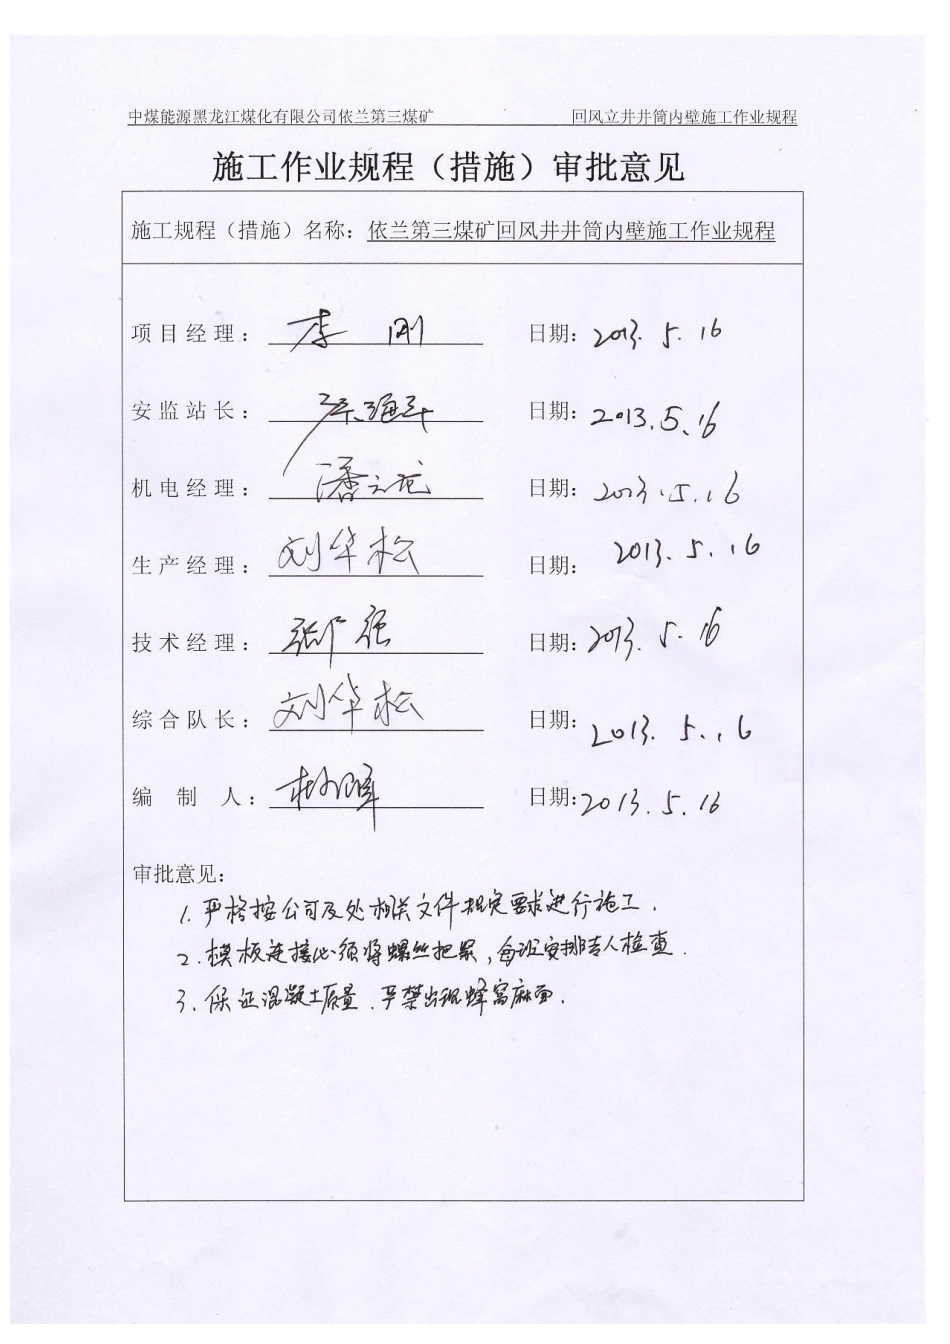 中煤能源黑龙江煤化有限公司依兰第三煤矿 回风立井井筒内壁施工作业规程
施工作业规程（措施）审批意见
施工规程（措施）名称：依兰第三煤矿回风井井筒内壁施工作业规程
项目经理：李刚 日期：2013.5.16
安监站长： 日期：2013.5.16
机电经理：潘云龙 日期：2013.5.16
生产经理：刘华松 日期：2013.5.16
技术经理： 日期：2013.5.16
综合队长：刘华松 日期：2013.5.16
编制人： 日期：2013.5.16
审批意见：
1. 严格按公司及处相关文件规定要求进行施工.
2. 模板连接必须将螺丝把紧,每班安排专人检查.
3、保证混凝土质量.严禁出现蜂窝麻面.